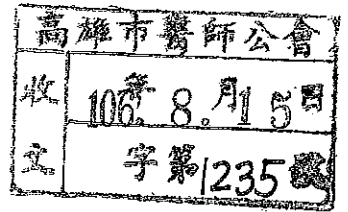 高雄市醫師公會
收 106年8月15日
文 字第1235號